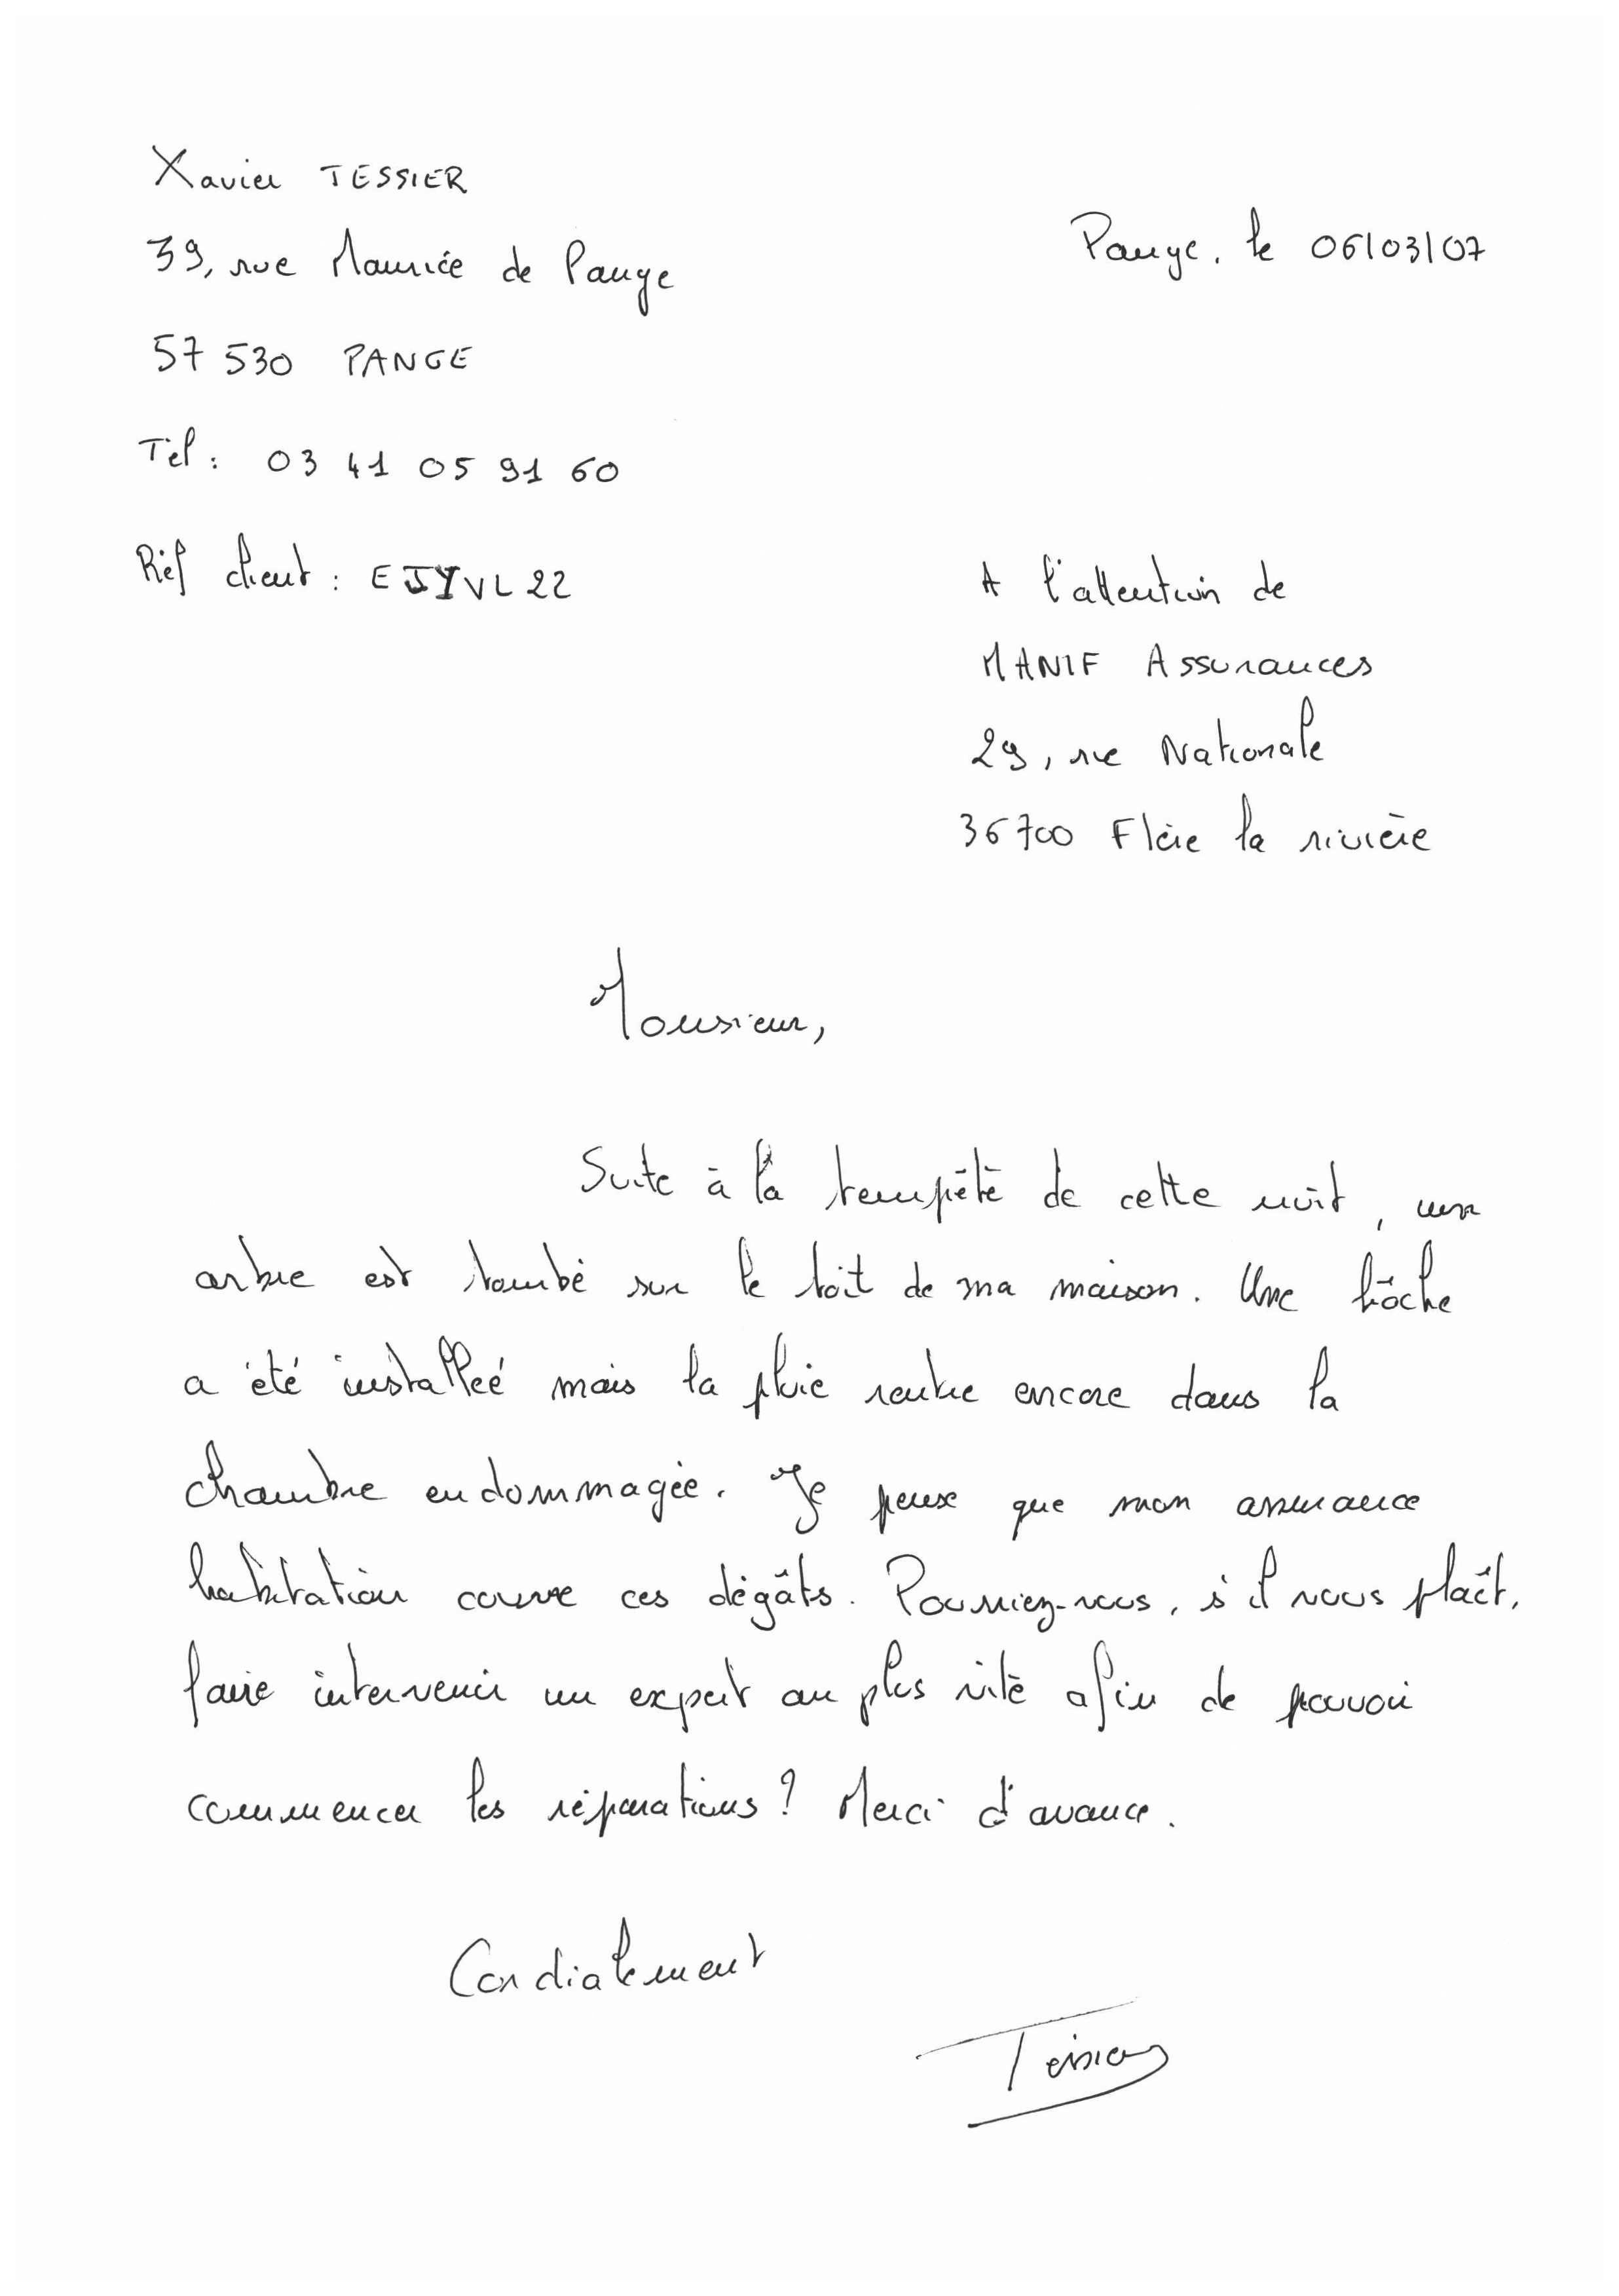 Xavier TESSIER
39, rue Maurice de Pange
Pange, le 06/03/07
57 530 PANGE
Tél : 03 41 05 91 60
Réf client : EJYVL22
A l'attention de
MANIF Assurances
29, rue Nationale
36700 Fléré la rivière
Monsieur,
Suite à la tempête de cette nuit, un
arbre est tombé sur le toit de ma maison. Une bâche
a été installée mais la pluie rentre encore dans la
chambre endommagée. Je pense que mon assurance
habitation couvre ces dégâts. Pourriez-vous, s'il vous plaît,
faire intervenir un expert au plus vite afin de pouvoir
commencer les réparations ? Merci d'avance.
Cordialement
Tessier